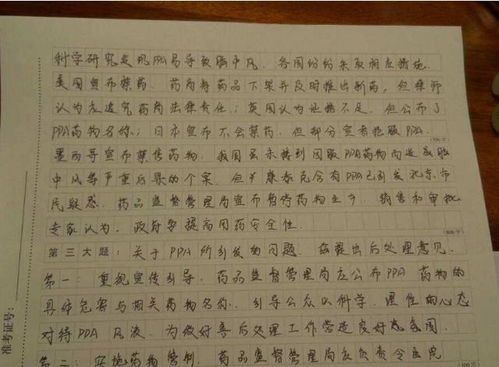 科学研究发现PPA易导致脑中风，各国纷纷采取相应措施。
美国宣布禁药，药商将药品下架并及时推出新药，但律师
认为应追究药商法律责任；英国认为证据不足，但公布了
PPA药物名称；日本宣布不会禁药，但部分宣布抵服PPA，
墨西哥宣布禁售药物。我国虽未接到因服PPA药物而造成脑
中风等严重后果的个案，但 康泰克含有PPA已引发北京市
民疑惑。药品监督管理局宣布暂停药物生产、销售和审批
专家认为，政府要提高用药安全性。
第三大题：关于PPA所引发的问题，兹提出后处理意见。
第一：重视宣传引导，药品监督管理局应公布PPA药物的
具体危害与相关药物名称，引导公众以科学、理性的心态
对待PPA风波，为做好善后处理工作营造良好氛围。
第二：实施药物管制，药品监督管理局应负责令医院
准考证号：